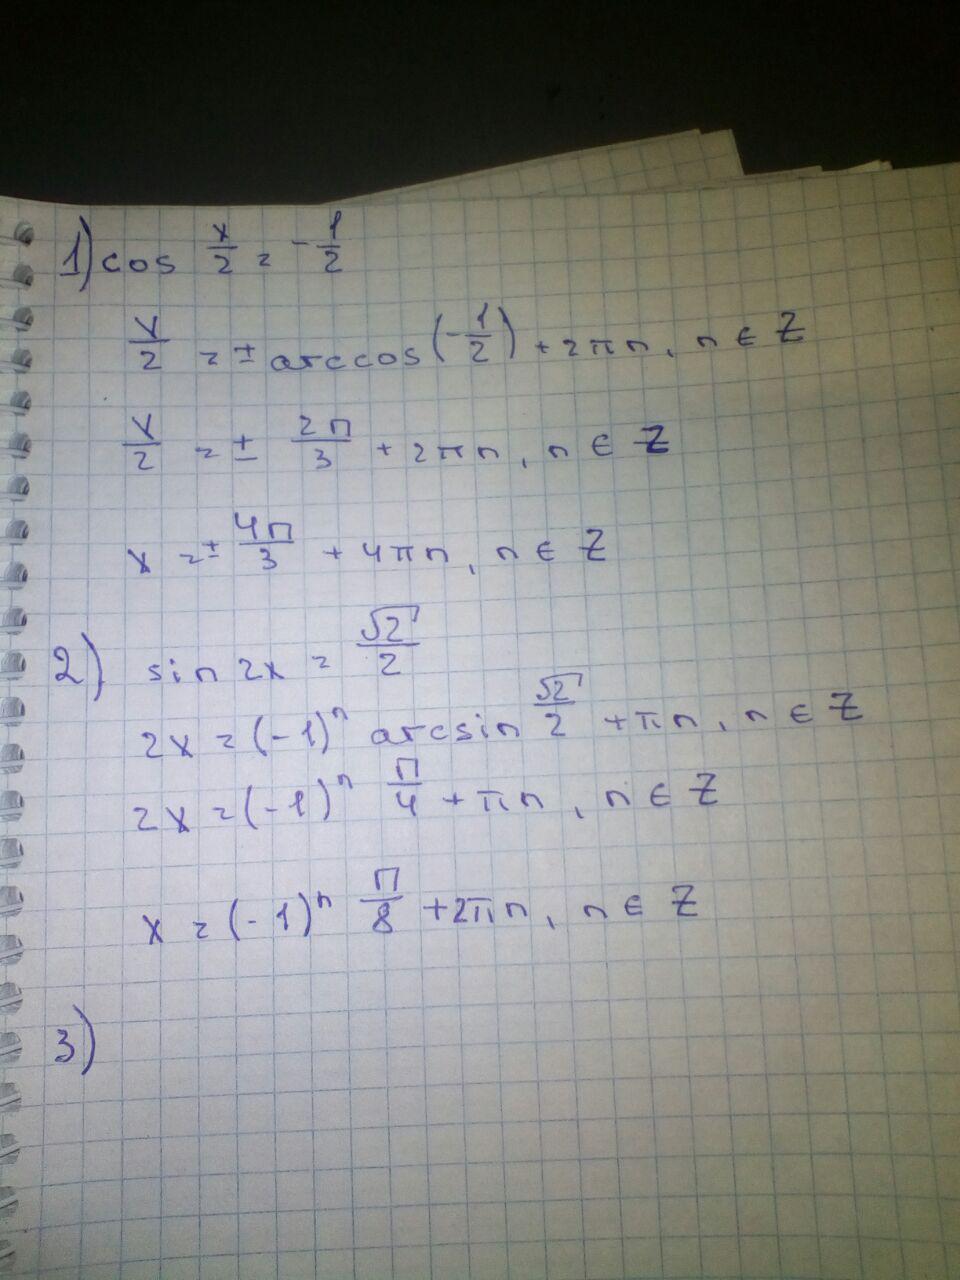 1) cos x/2 = -1/2
x/2 = ± arccos(-1/2) + 2πn, n ∈ Z
x/2 = ± 2π/3 + 2πn, n ∈ Z
x = ± 4π/3 + 4πn, n ∈ Z
2) sin 2x = √2/2
2x = (-1)ⁿ arcsin √2/2 + πn, n ∈ Z
2x = (-1)ⁿ π/4 + πn, n ∈ Z
x = (-1)ⁿ π/8 + 2πn, n ∈ Z
3)